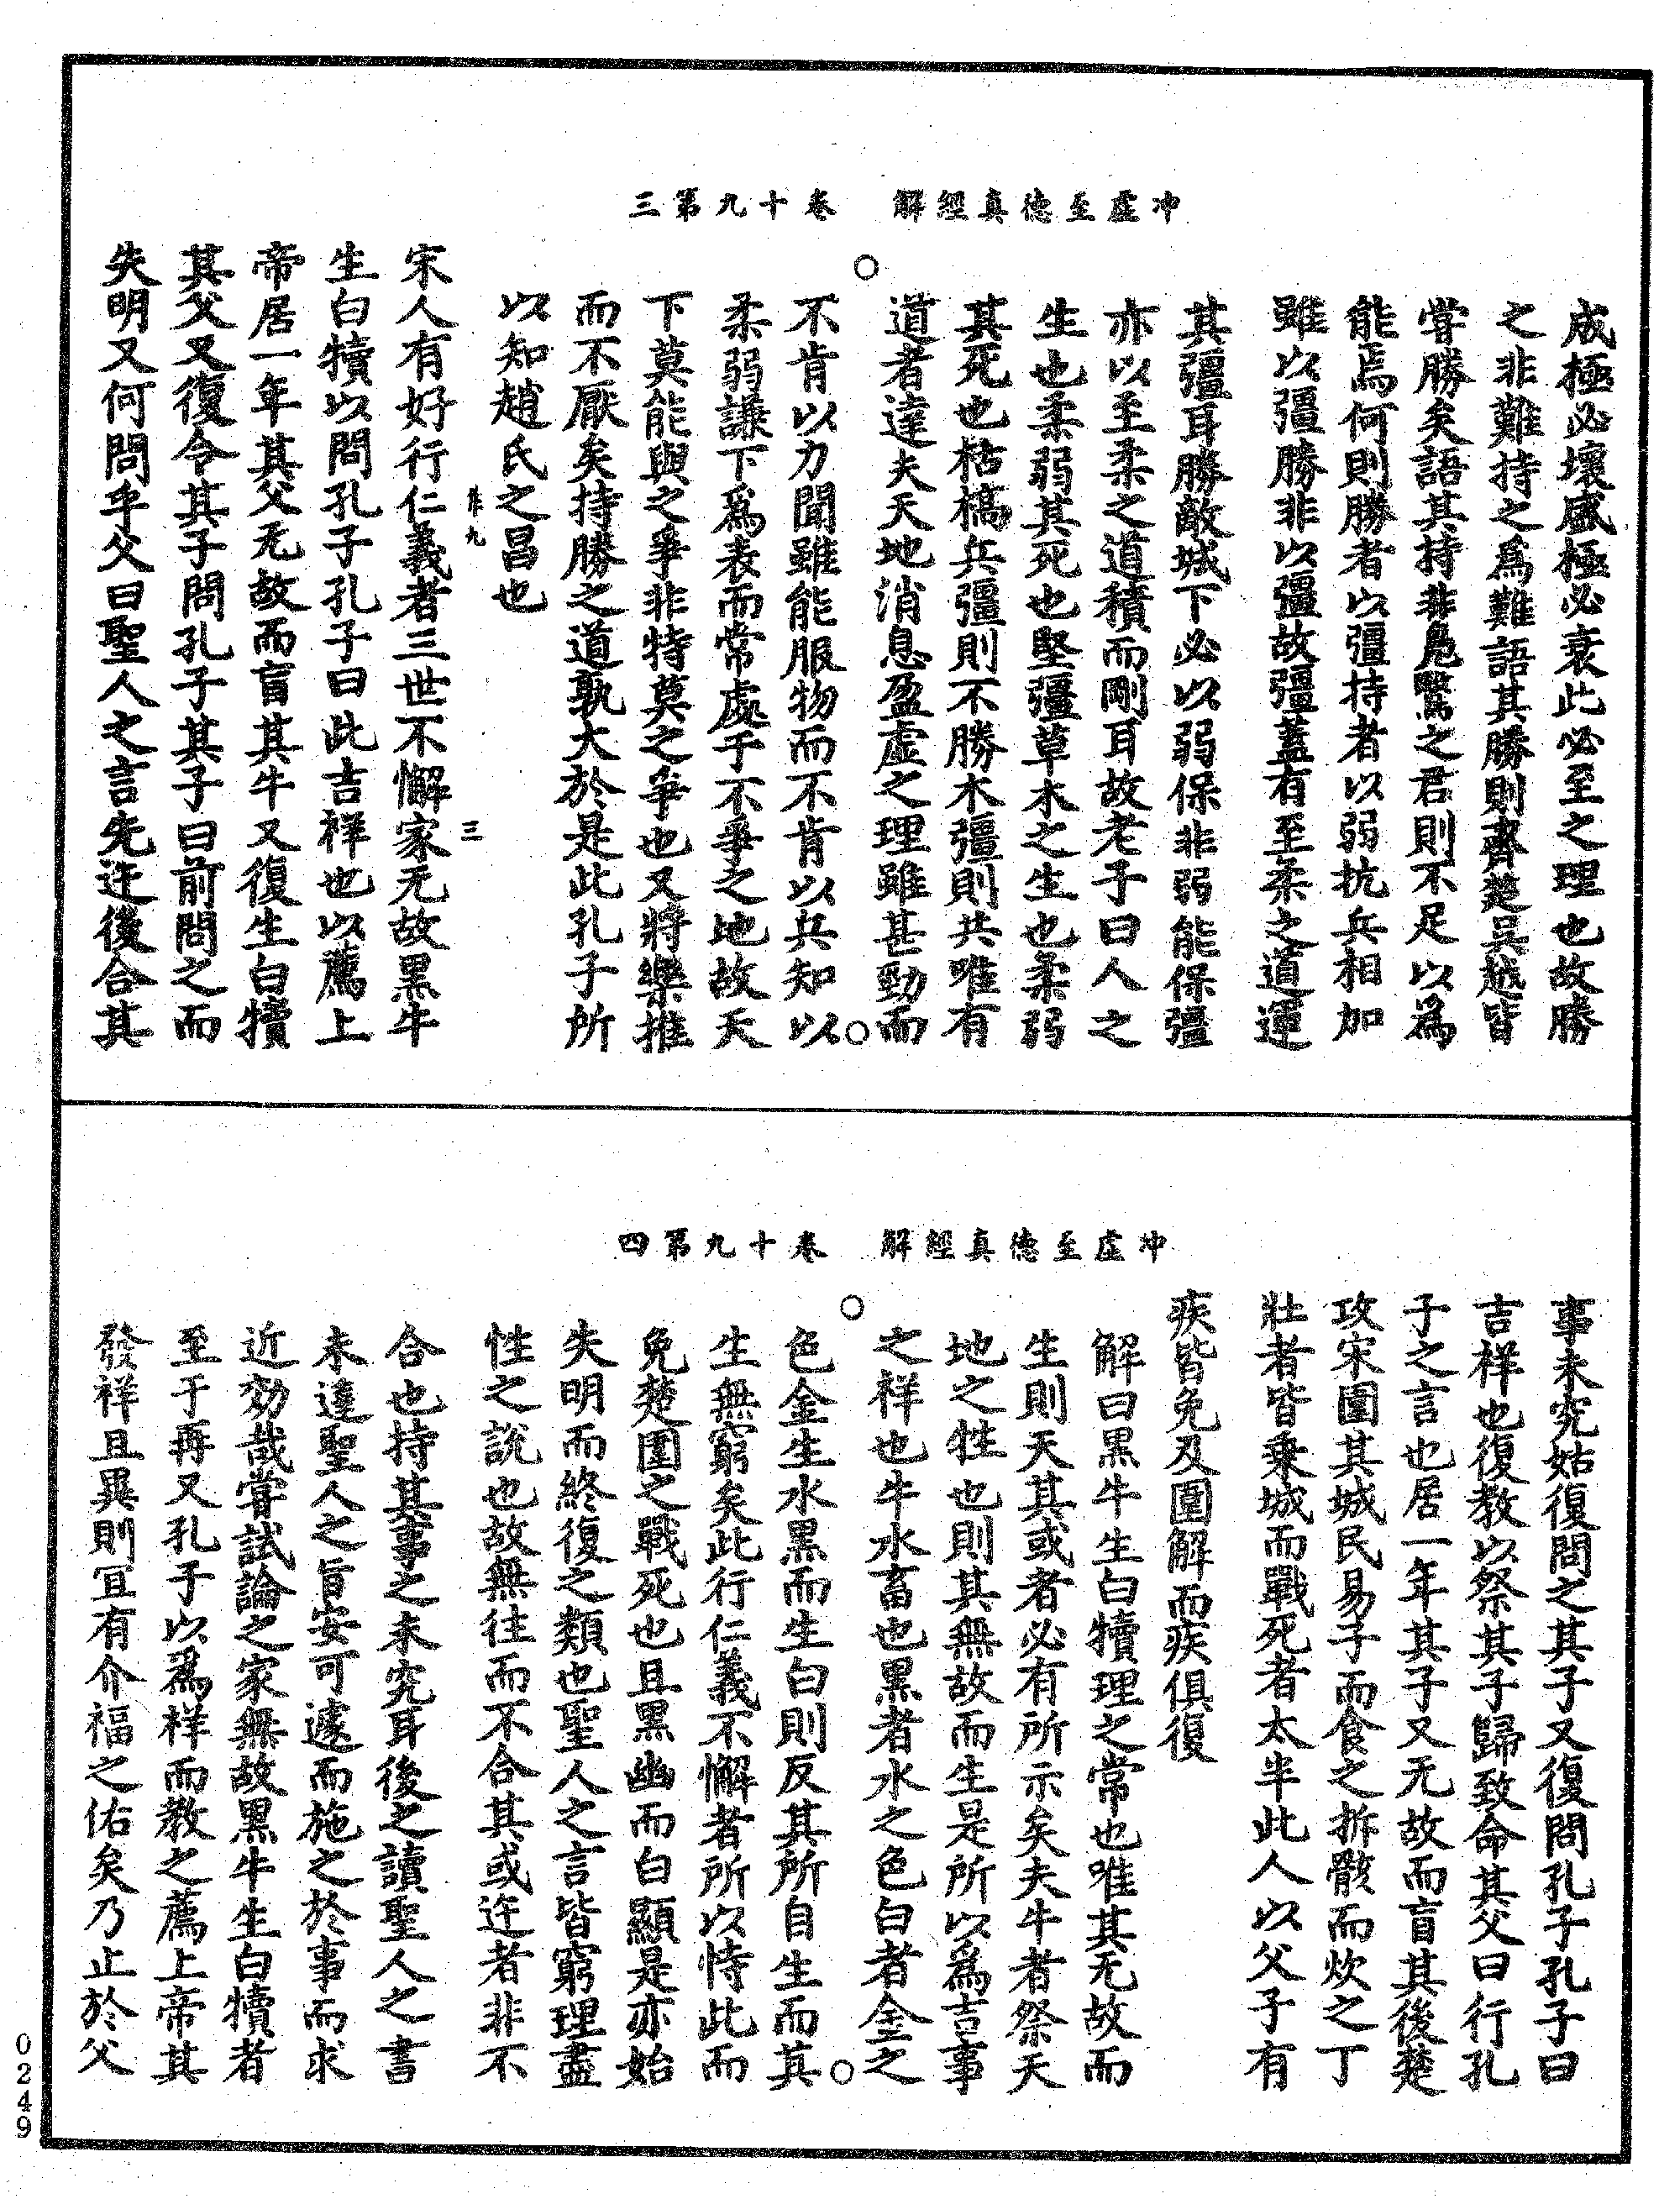 冲虛至德真經解　卷十九第三
成極必壞盛極必衰此必至之理也故勝
之非難持之爲難語其勝則齊楚吳越皆
嘗勝矣語其持非鳧鷖之君則不足以爲
能焉何則勝者以彊持者以弱抗兵相加
雖以彊勝非以彊故彊蓋有至柔之道運
其彊耳勝敵城下必以弱保非弱能保彊
亦以至柔之道積而剛耳故老子曰人之
生也柔弱其死也堅彊草木之生也柔弱
其死也枯槁兵彊則不勝木彊則共唯有
道者達夫天地消息盈虛之理雖甚勁而
不肯以力聞雖能服物而不肯以兵知以
柔弱謙下爲表而常處于不爭之地故天
下莫能與之爭非特莫之爭也又將樂推
而不厭矣持勝之道孰大於是此孔子所
以知趙氏之昌也
宋人有好行仁義者三世不懈家无故黑牛
生白犢以問孔子孔子曰此吉祥也以薦上
帝居一年其父无故而盲其牛又復生白犢
其父又復令其子問孔子其子曰前問之而
失明又何問乎父曰聖人之言先迕後合其
冲虛至德真經解　卷十九第四
事未究姑復問之其子又復問孔子孔子曰
吉祥也復教以祭其子歸致命其父曰行孔
子之言也居一年其子又无故而盲其後楚
攻宋圍其城民易子而食之拆骸而炊之丁
壯者皆乗城而戰死者太半此人以父子有
疾皆免及圍解而疾俱復
解曰黑牛生白犢理之常也唯其无故而
生則天其或者必有所示矣夫牛者祭天
地之牲也則其無故而生是所以爲吉事
之祥也牛水畜也黑者水之色白者金之
色金生水黑而生白則反其所自生而其
生無窮矣此行仁義不懈者所以恃此而
免楚圍之戰死也且黑幽而白顯是亦始
失明而終復之類也聖人之言皆窮理盡
性之說也故無往而不合其或迕者非不
合也持其事之未究耳後之讀聖人之書
未達聖人之旨安可遽而施之於事而求
近効哉嘗試論之家無故黑牛生白犢者
至于再又孔子以爲祥而教之薦上帝其
發祥且異則宜有介福之佑矣乃止於父
0249